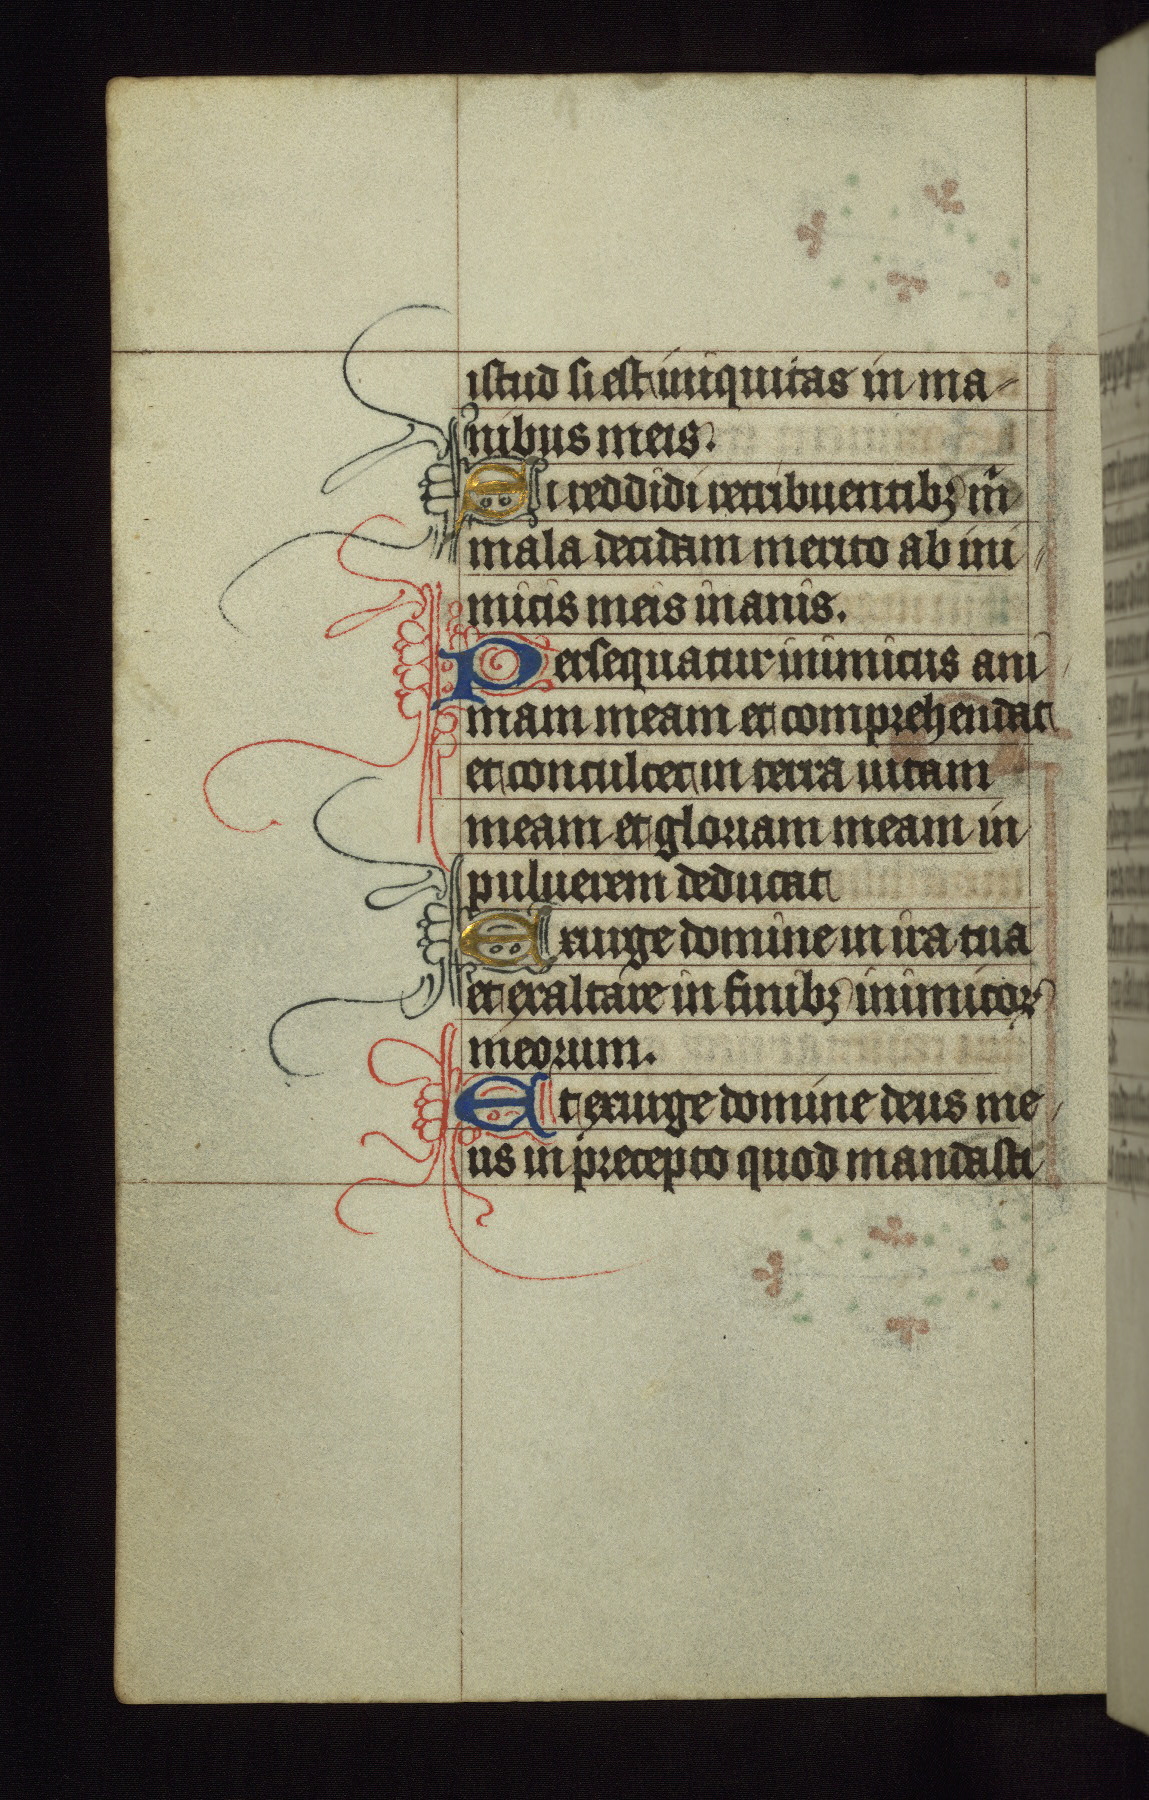 istud si est iniquitas in ma-
nibus meis.
Si reddidi retribuentibꝫ m̃
mala decidam merito ab ini
micis meis inanis.
Persequatur inimicus ani
mam meam et comprehendat
et conculcet in terra uitam
meam et gloriam meam in
puluerem deducat
Exurge domine in ira tua
et exaltare in finibꝫ inimicoꝝ
meorum.
Et exurge domine deus me
us in precepto quod mandasti